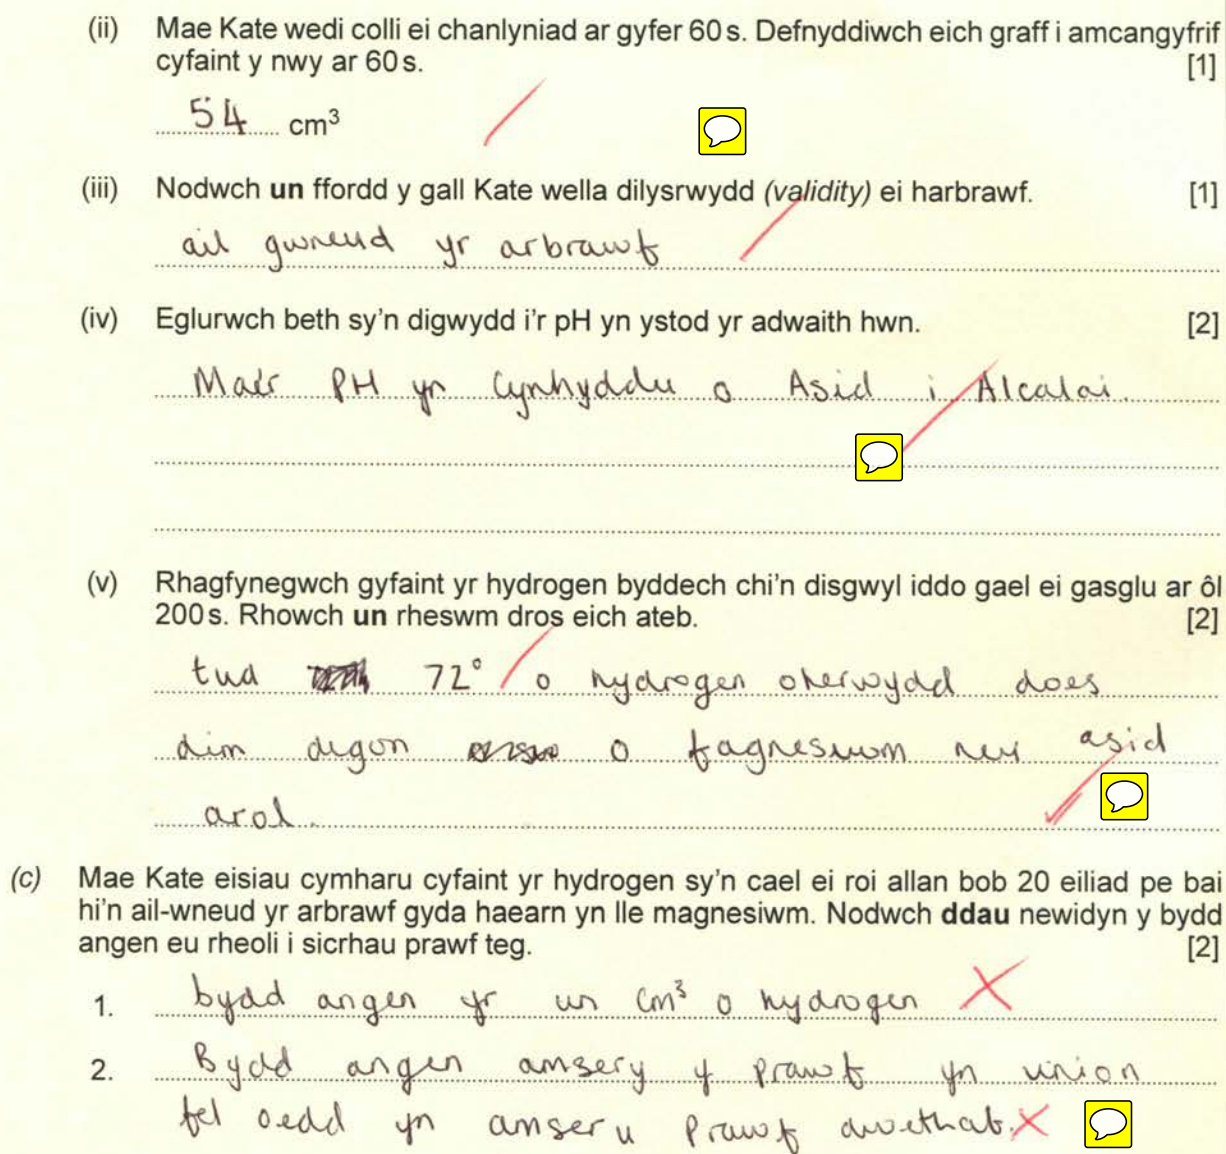 (ii) Mae Kate wedi colli ei chanlyniad ar gyfer 60 s. Defnyddiwch eich graff i amcangyfrif
cyfaint y nwy ar 60 s. [1]
54 cm³
(iii) Nodwch un ffordd y gall Kate wella dilysrwydd (validity) ei harbrawf. [1]
ail gwneud yr arbrawf
(iv) Eglurwch beth sy'n digwydd i'r pH yn ystod yr adwaith hwn. [2]
Mae'r PH yn Cynhyddu o Asid i Alcalai.
(v) Rhagfynegwch gyfaint yr hydrogen byddech chi'n disgwyl iddo gael ei gasglu ar ôl
200 s. Rhowch un rheswm dros eich ateb. [2]
tua 72° o hydrogen oherwydd does
dim degon o fagnesiwm neu asid
arol.
(c) Mae Kate eisiau cymharu cyfaint yr hydrogen sy'n cael ei roi allan bob 20 eiliad pe bai
hi'n ail-wneud yr arbrawf gyda haearn yn lle magnesiwm. Nodwch ddau newidyn y bydd
angen eu rheoli i sicrhau prawf teg. [2]
1. bydd angen yr un cm³ o hydrogen
2. Bydd angen amsery y Prawf yn union
fel oedd yn amser u Prawf dwethaf.